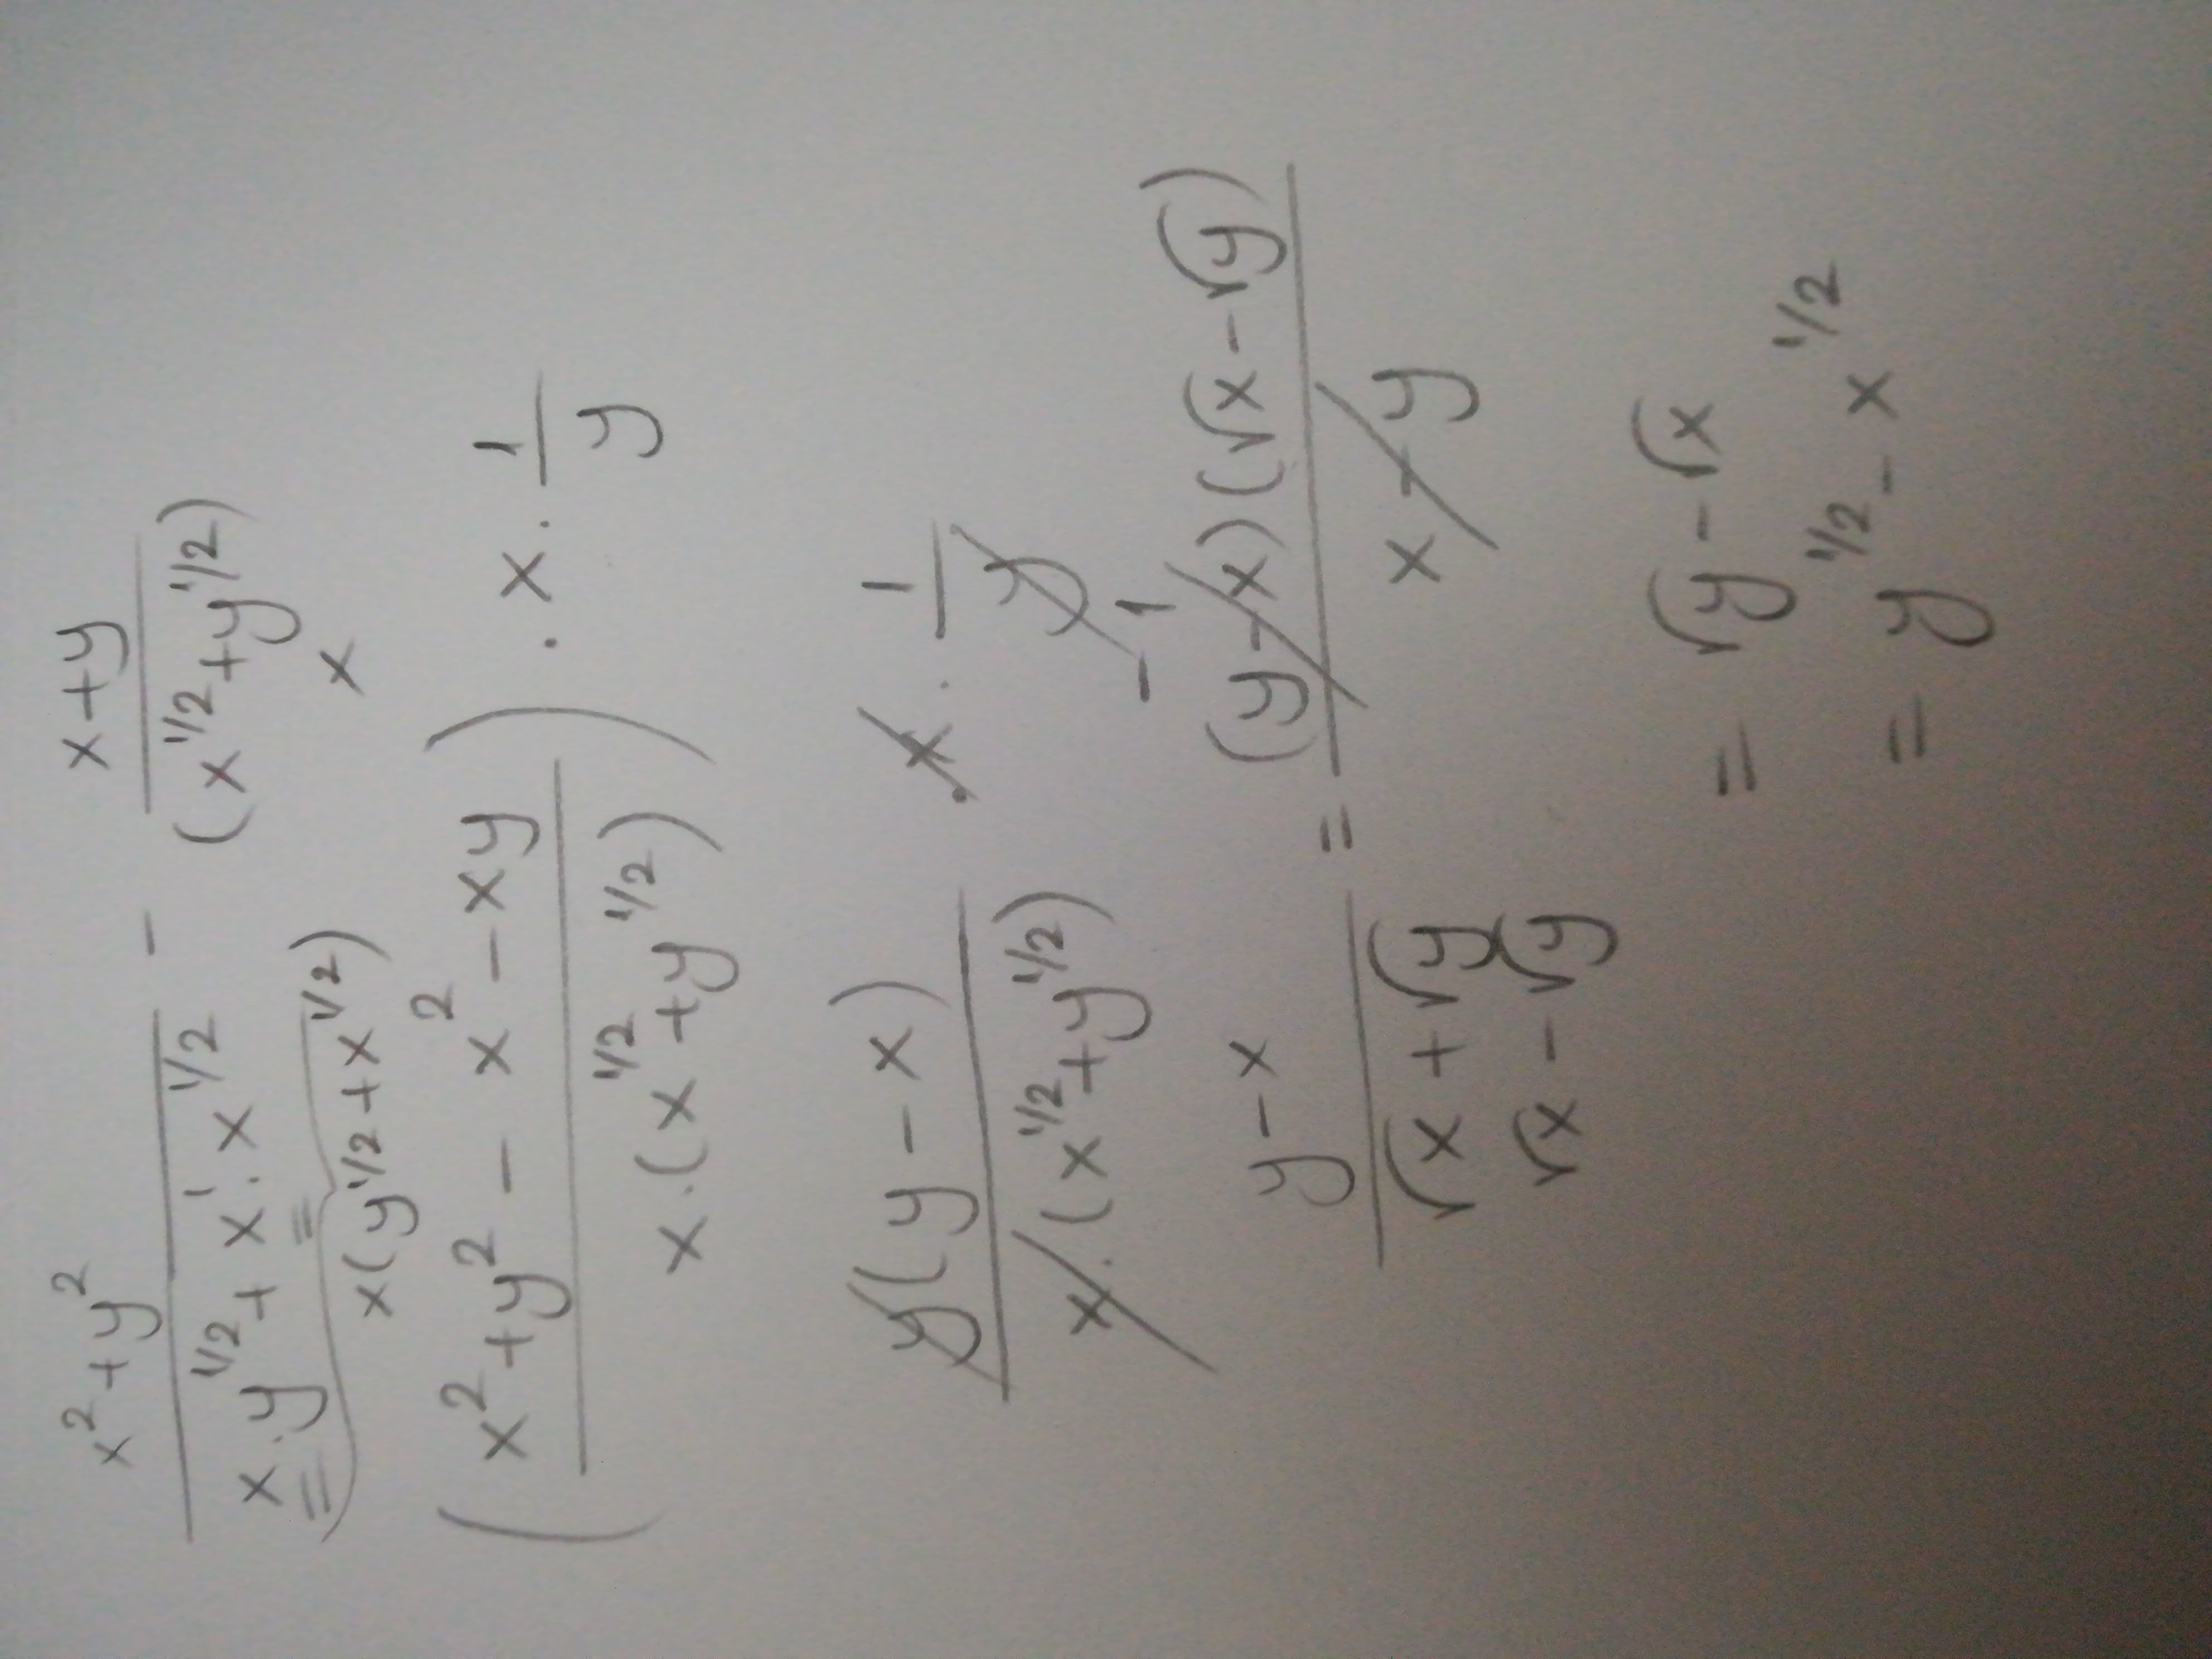 x²+y² / x.y^1/2 + x¹.x^1/2 - x+y / (x^1/2+y^1/2)
= = x
x(y^1/2+x^1/2)
(x²+y² - x² - xy / x.(x^1/2+y^1/2)) . x . 1/y
y(y-x) / x.(x^1/2+y^1/2) . x . 1/y
-1
y-x / √x+√y = (y-x)(√x-√y) / x-y
√x-√y
= √y-√x
= y^1/2 - x^1/2